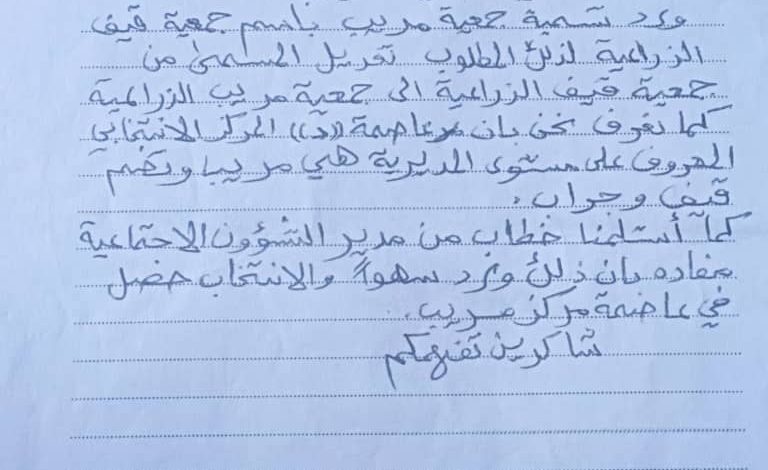 ورد تسمية جمعية مريب باسم جمعية قيف
الزراعية لذلك المطلوب تعديل المسمى من
جمعية قيف الزراعية الى جمعية مريب الزراعية
كما تعرف نحن بان عاصمة ((د)) المركز الانتخابي
المعروف على مستوى المديرية هي مريب وتضم
قيف وجراب.
كما أستلمنا خطاب من مدير الشؤون الاجتماعية
مفاده بان ذلك ورد سهواً والانتخاب حصل
في عاصمة مركز مريب.
شاكرين تفهمكم